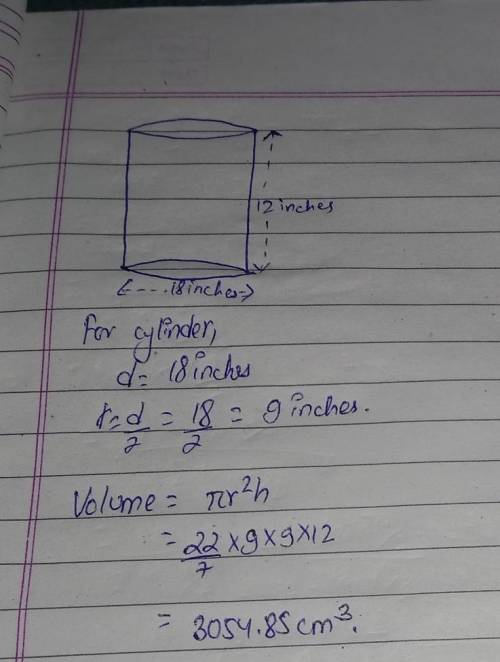 12 inches
18 inches
For cylinder,
d = 18 inches
r = d/2 = 18/2 = 9 inches.
Volume = πr²h
= 22/7 × 9 × 9 × 12
= 3054.85 cm³.